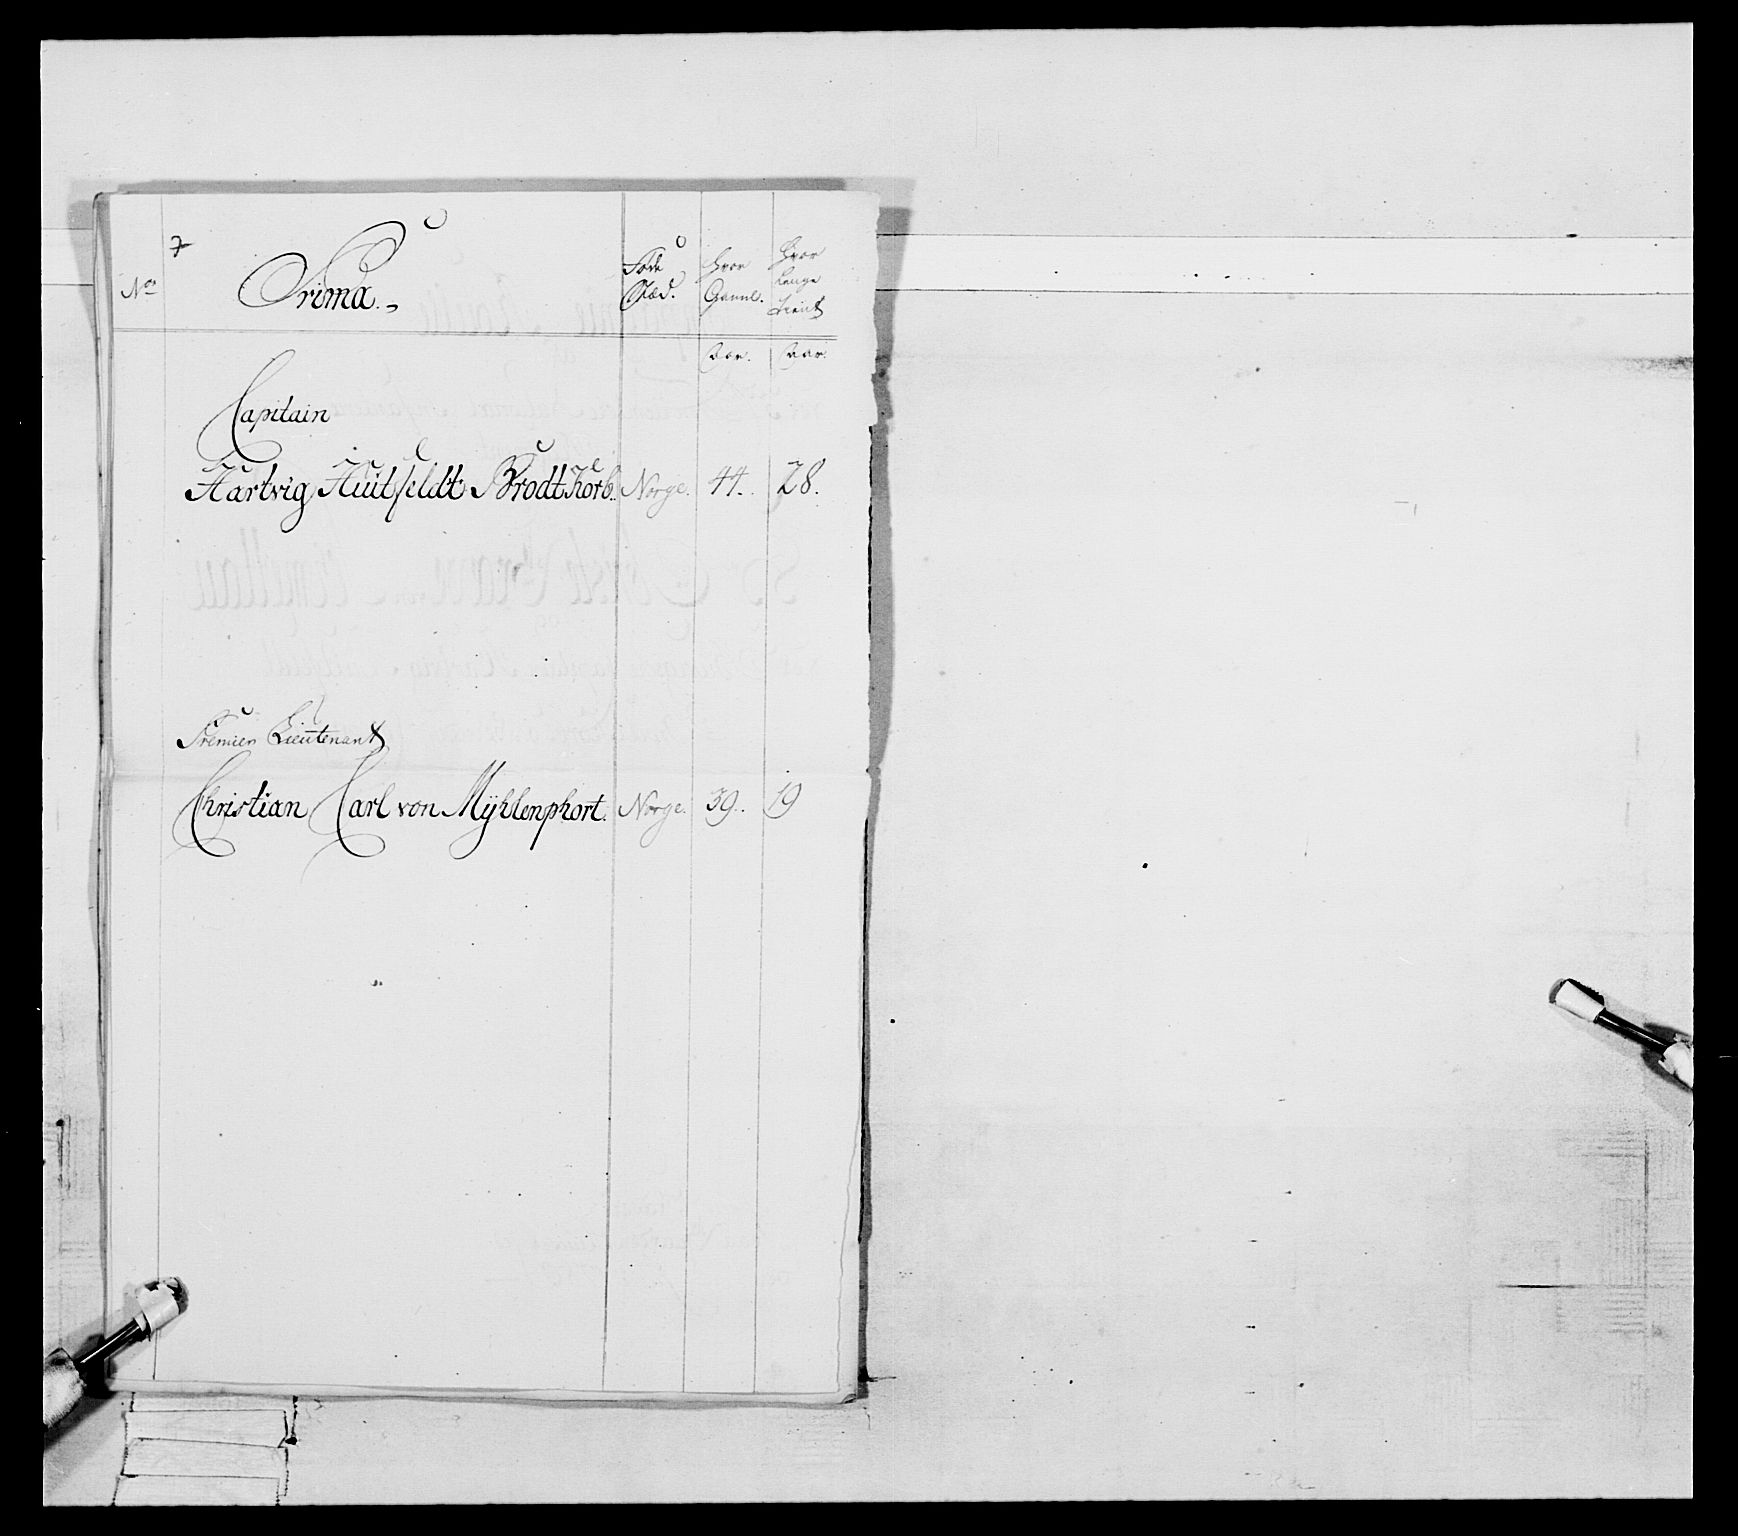 7
No Prima.
Føde Stæd.
Hvor Gaml.
Hvor Lenge Tient
Aar. Aar.
Capitain
Hartvig Huitfeldt Brodtkorb. Norge. 44. 28.
Premier Lieutenant
Christian Carl von Mÿhlenphort. Norge. 39. 19